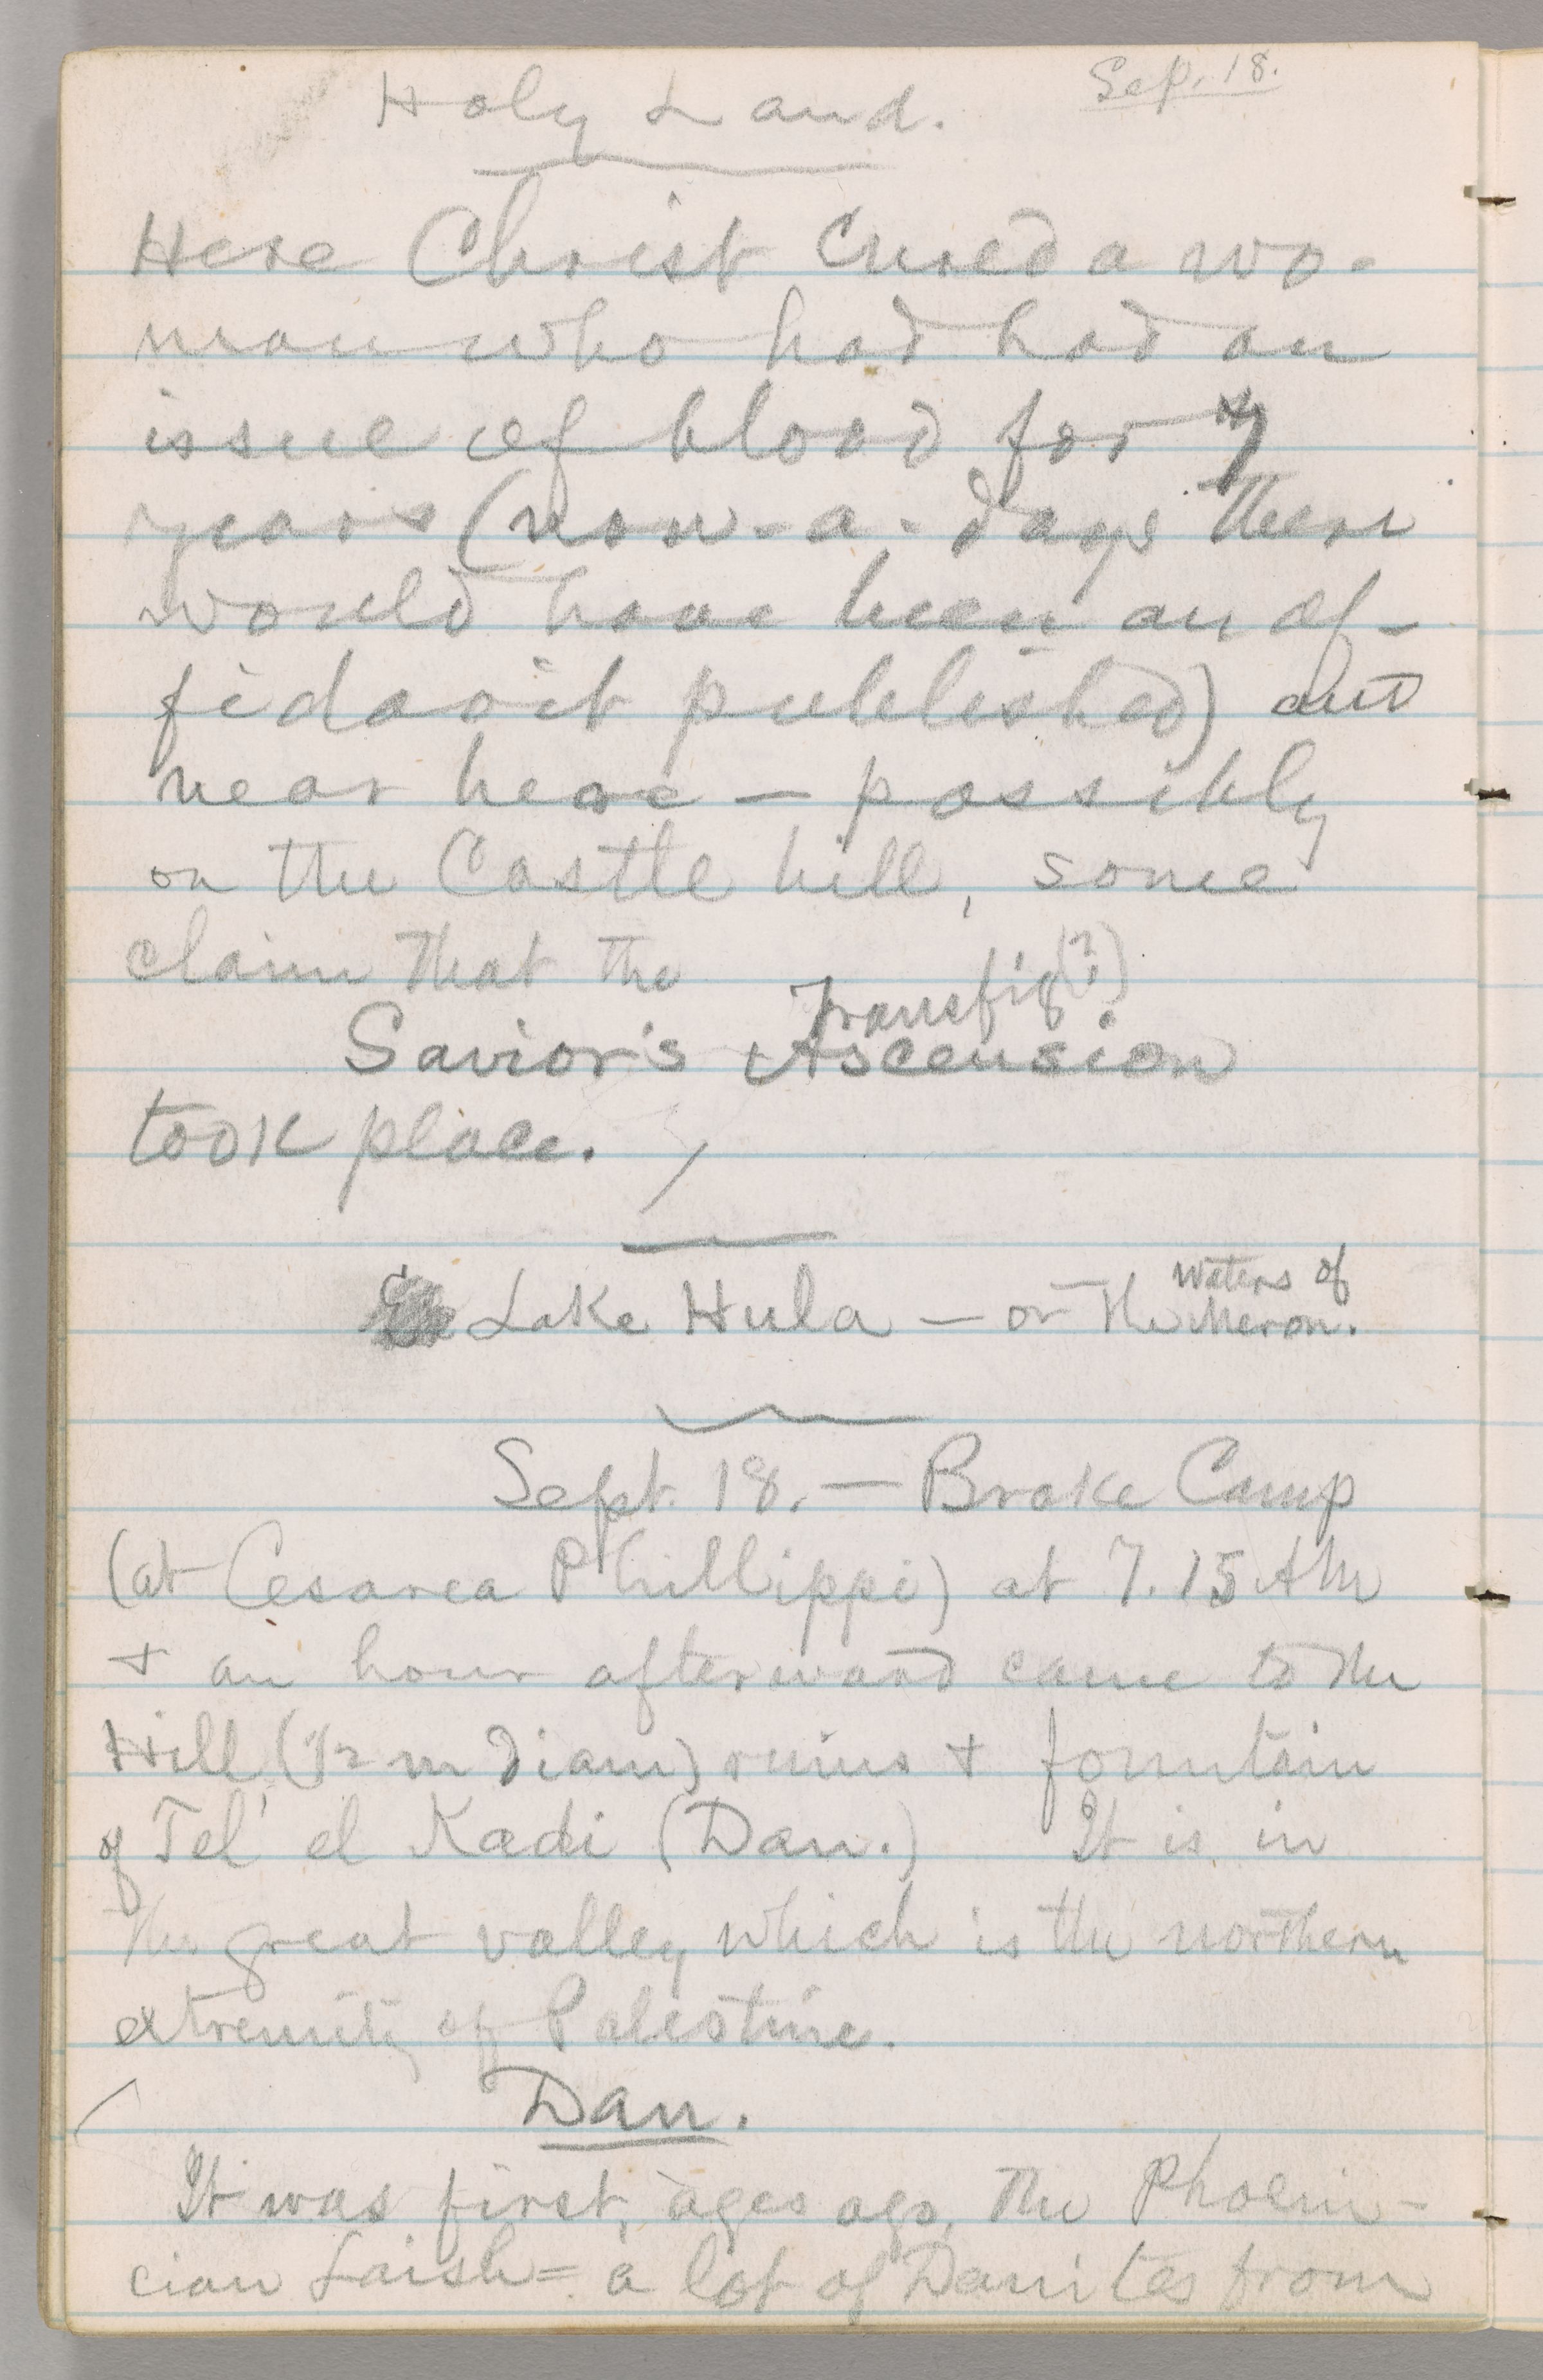 Sep. 18.
Holy Land.
Here Christ cured a wo-
man who had had an
issue of blood for 7
years (now-a-days there
would have been an af-
fidavit published) and
near here — possibly
on the Castle hill, some
claim that the
Transfig(?)
Savior's Ascension
took place.
Lake Hula — or the Waters of Merom.
Sept. 18. — Broke Camp
(at Cesarea Phillippi) at 7.15 AM
+ an hour afterward came to the
Hill (1/2 m diam) ruins + fountain
of Tel' el Kadi (Dan.) It is in
the great valley which is the northern
extremity of Palestine.
Dan.
It was first, ages ago, the Phoeni-
cian Laish = a lot of Danites from